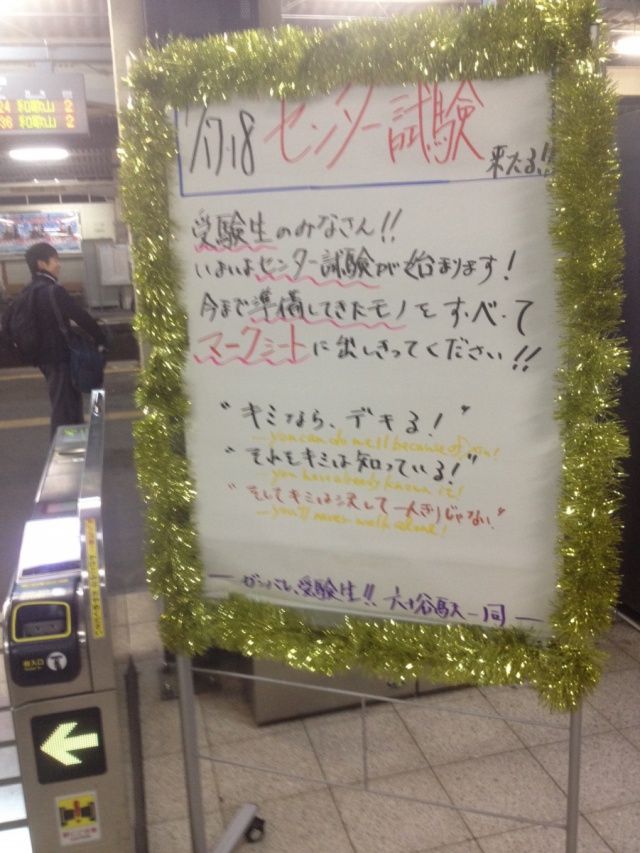 24 和歌山 2
36 和歌山 2
1/17.18 センター試験 来たる!!
受験生のみなさん!!
いよいよセンター試験が始まります!
今まで準備してきたモノをすべて
マークシートに出しきってください!!
"キミなら、デキる!"
—you can do well because of you!
"それをキミは知っている!"
—you have already known it!
"そしてキミは決して一人きりじゃない"
—you'll never walk alone!
— ガンバレ、受験生!! 六十谷駅一同 —